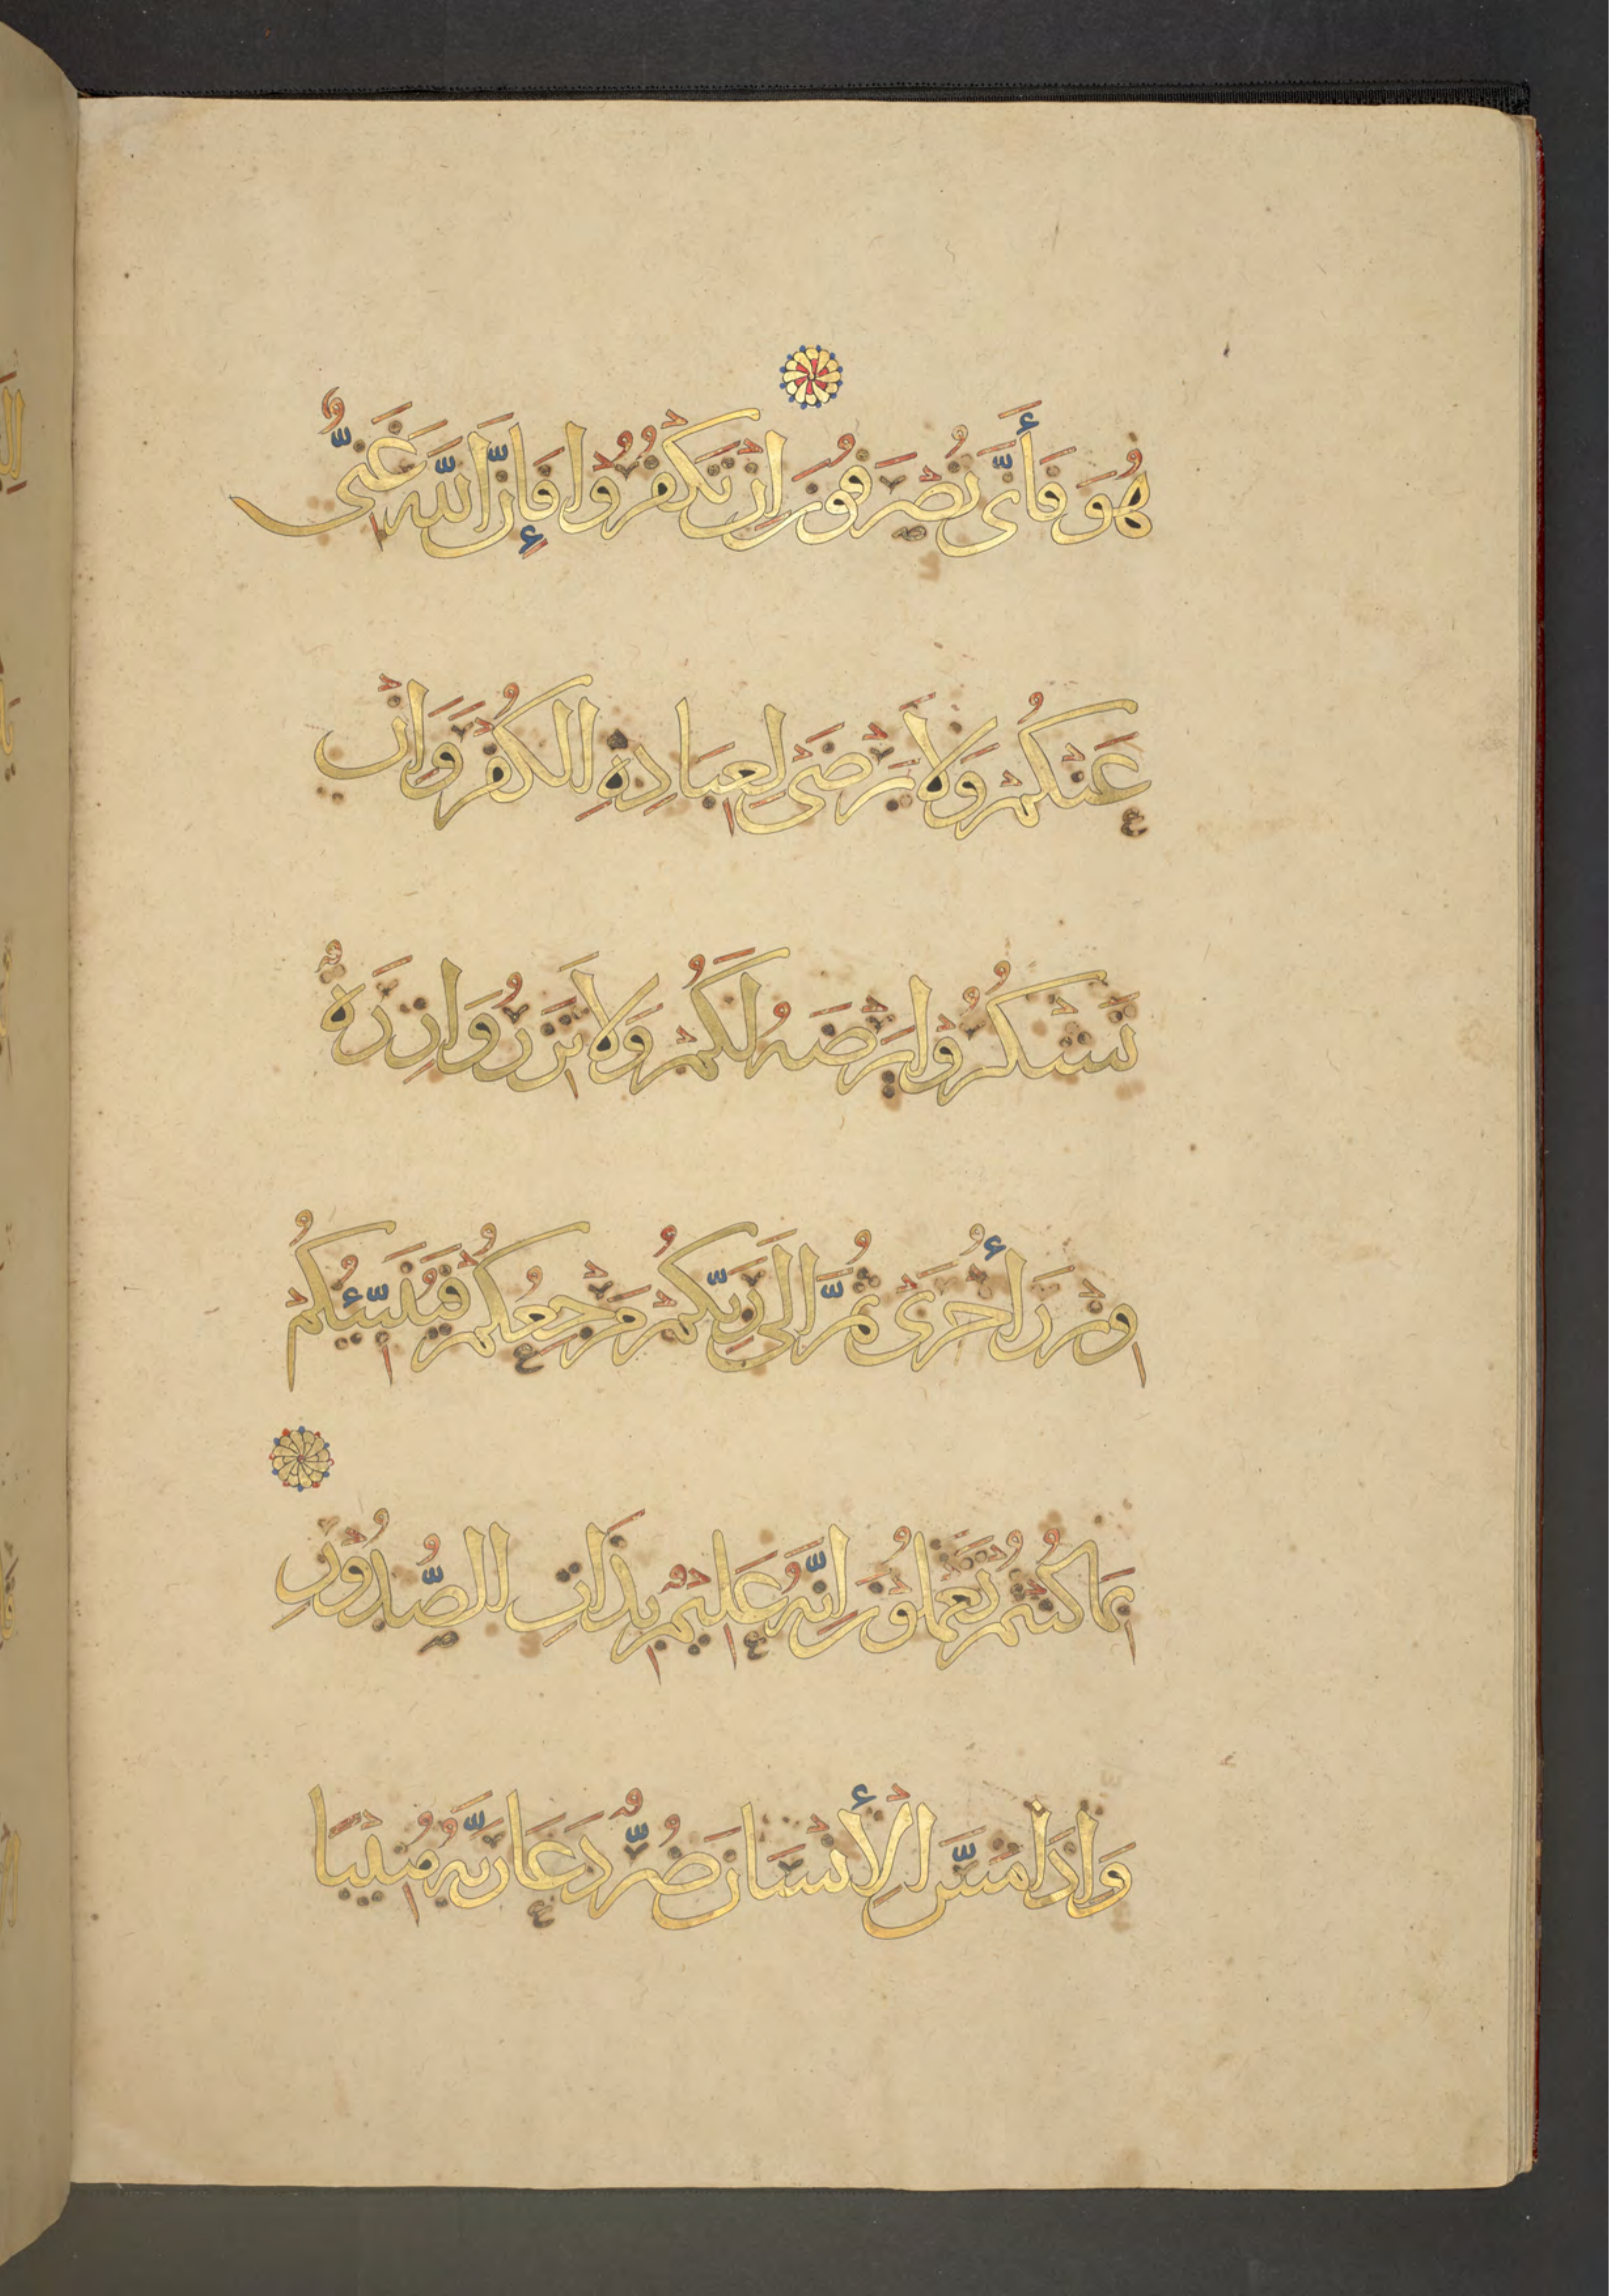 هُوَ فَأَنَّى تُصْرَفُونَ اِنْ تَكْفُرُوا فَإِنَّ اللَّهَ غَنِيٌّ
عَنْكُمْ وَلَا يَرْضَى لِعِبَادِهِ الْكُفْرَ وَاِنْ
تَشْكُرُوا يَرْضَهُ لَكُمْ وَلَا تَزِرُ وَازِرَةٌ
وِزْرَ أُخْرَى ثُمَّ اِلَى رَبِّكُمْ مَرْجِعُكُمْ فَيُنَبِّئُكُمْ
بِمَا كُنْتُمْ تَعْمَلُونَ اِنَّهُ عَلِيمٌ بِذَاتِ الصُّدُورِ
وَاِذَا مَسَّ الْأِنْسَانَ ضُرٌّ دَعَا رَبَّهُ مُنِيبًا